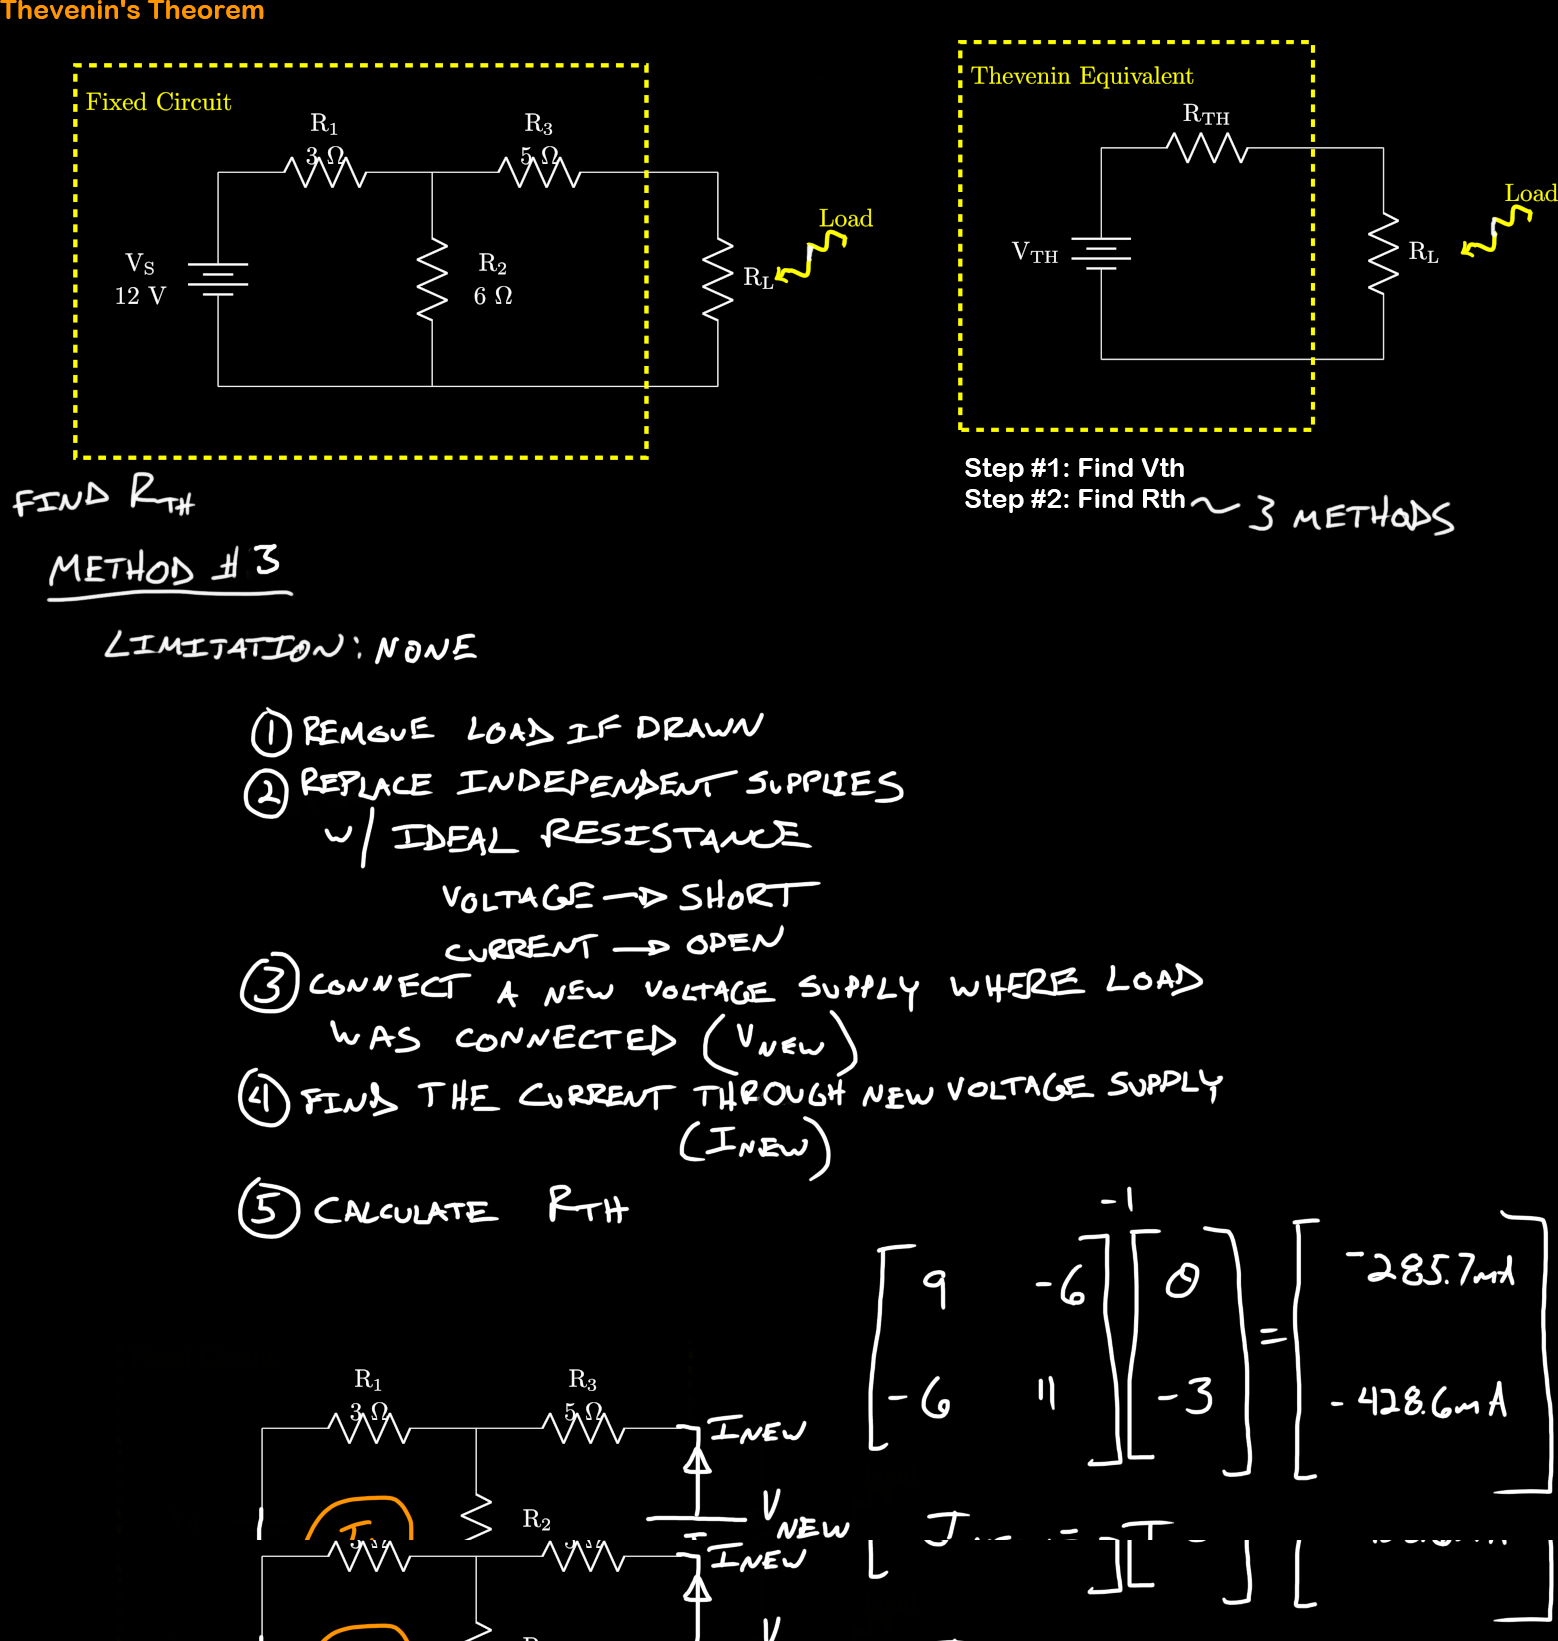 Thevenin's Theorem
Fixed Circuit
R1
3 Ω
R3
5 Ω
VS
12 V
R2
6 Ω
RL
Load
Thevenin Equivalent
RTH
VTH
RL
Load
Step #1: Find Vth
Step #2: Find Rth ~ 3 METHODS
FIND RTH
METHOD #3
LIMITATION: NONE
① REMOVE LOAD IF DRAWN
② REPLACE INDEPENDENT SUPPLIES
w/ IDEAL RESISTANCE
VOLTAGE → SHORT
CURRENT → OPEN
③ CONNECT A NEW VOLTAGE SUPPLY WHERE LOAD
WAS CONNECTED (VNEW)
④ FIND THE CURRENT THROUGH NEW VOLTAGE SUPPLY
(INEW)
⑤ CALCULATE RTH
-1
9 -6 0 = -285.7mA
-6 11 -3 -428.6mA
R1
3 Ω
R3
5 Ω
INEW
R2
VNEW
INEW